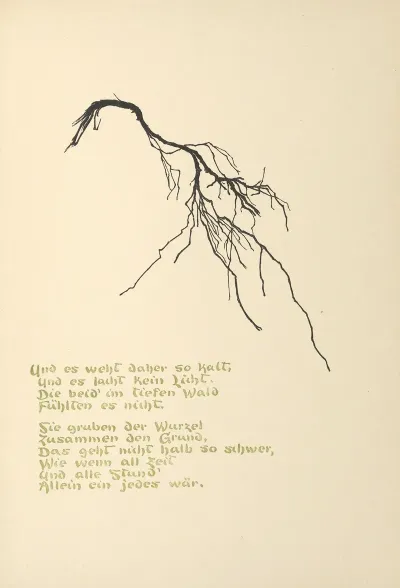 Und es weht daher so kalt,
Und es lacht kein Licht.
Die beid' im tiefen Wald
Fühlten es nicht.
Sie gruben der Wurzel
Zusammen den Grund,
Das geht nicht halb so schwer,
Wie wenn all Zeit
Und alle Stund'
Allein ein jedes wär.